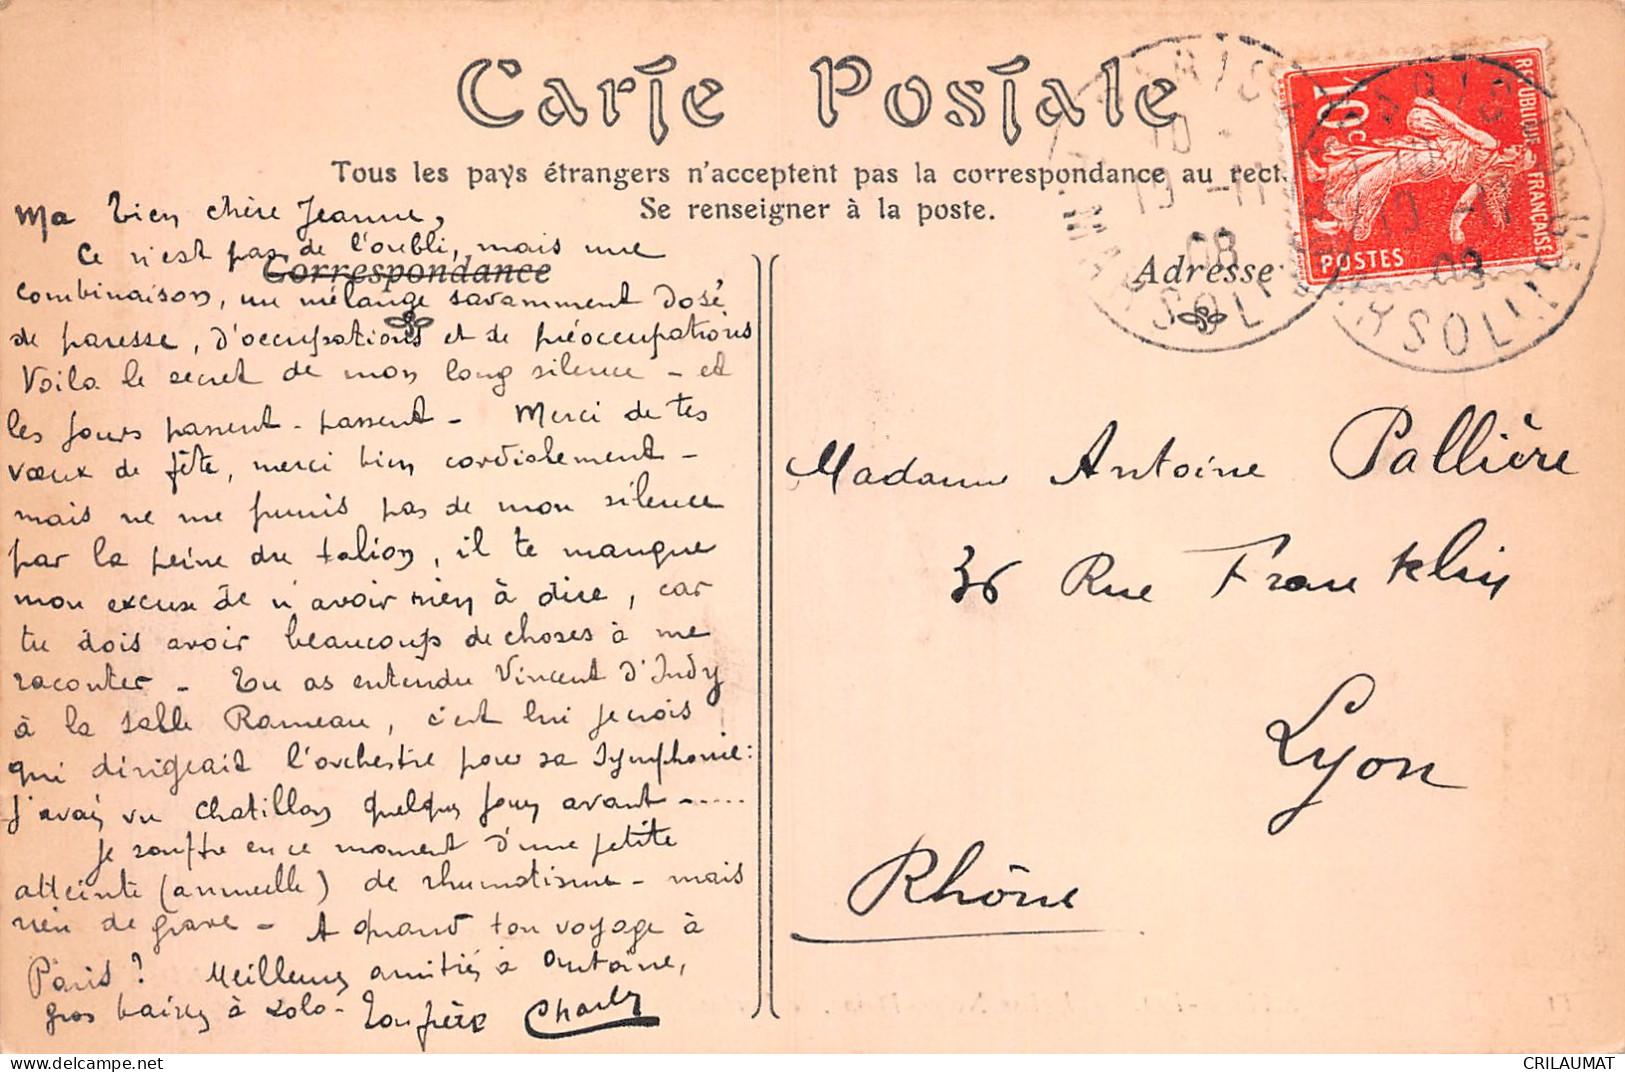 Carte Postale
Tous les pays étrangers n'acceptent pas la correspondance au rect
Se renseigner à la poste.
Correspondance
Adresse
Ma bien chère Jeanne,
Ce n'est pas de l'oubli, mais une
combinaison, un mélange savamment dosé
de paresse, d'occupations et de préoccupations
Voila le secret de mon long silence - et
les jours passent - passent - Merci de tes
vœux de fête, merci bien cordialement -
mais ne me punis pas de mon silence
par la peine du talion, il te manque
mon excuse de n'avoir rien à dire, car
tu dois avoir beaucoup de choses à me
raconter - Tu as entendu Vincent d'Indy
à la salle Rameau, c'est lui je crois
qui dirigeait l'orchestre pour sa Symphonie :
J'avais vu Chatillon quelques jours avant - .....
Je souffre en ce moment d'une petite
atteinte (annuelle) de rhumatisme - mais
rien de grave - A quand ton voyage à
Paris ? Meilleures amitiés à Antoine,
gros baisers à Lolo - Ton frère Charles
REPUBLIQUE FRANÇAISE
10c
POSTES
PARIS
10 -
19 -11
08
R. MARSOLLIER
PARIS
19 -11
08
MARSOLLIER
Madame Antoine Pallière
36 Rue Franklin
Lyon
Rhône
https://www.delcampe.net
CRILAUMAT